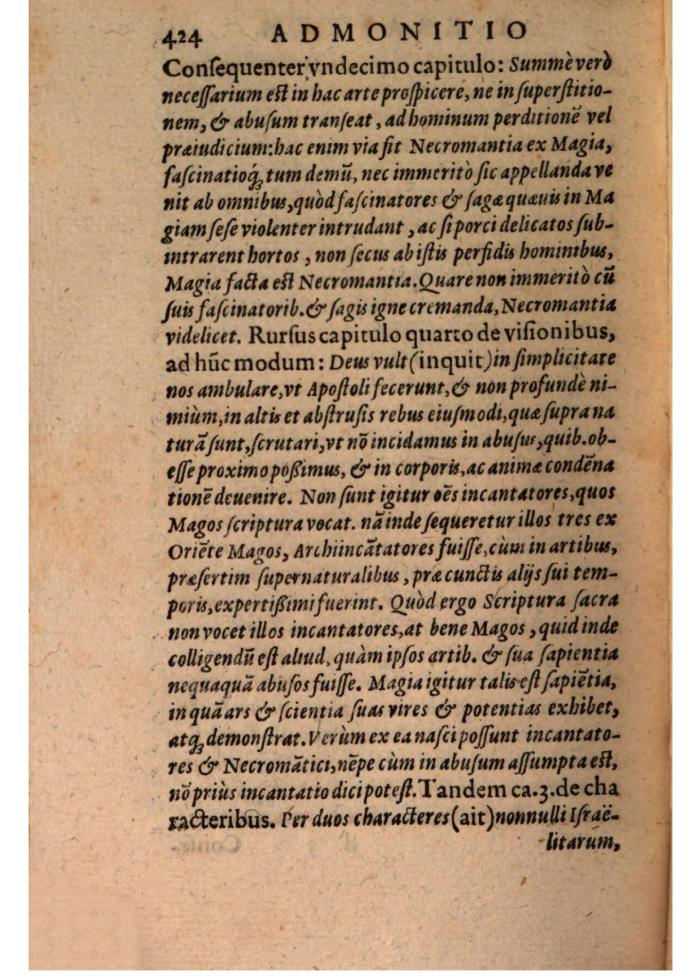 424 ADMONITIO
Conſequenter vndecimo capitulo: Summè verò
neceſſarium eſt in hac arte proſpicere, ne in ſuperſtitio-
nem, & abuſum tranſeat, ad hominum perditionẽ vel
præiudicium: hac enim via fit Necromantia ex Magia,
faſcinatioq́ꝫ tum demũ, nec immeritò ſic appellanda ve
nit ab omnibus, quòd faſcinatores & ſagæ quæuis in Ma
giam ſeſe violenter intrudant, ac ſi porci delicatos ſub-
intrarent hortos, non ſecus ab iſtis perfidis hominibus,
Magia facta eſt Necromantia. Quare non immeritò cũ
ſuis faſcinatorib. & ſagis igne cremanda, Necromantia
videlicet. Rurſus capitulo quarto de viſionibus,
ad hũc modum: Deus vult (inquit) in ſimplicitate
nos ambulare, vt Apoſtoli fecerunt, & non profundè ni-
miùm, in altis et abſtruſis rebus eiuſmodi, quæ ſupra na
turã ſunt, ſcrutari, vt nõ incidamus in abuſus, quib. ob-
eſſe proximo poßimus, & in corporis, ac animæ condẽna
tionẽ deuenire. Non ſunt igitur oẽs incantatores, quos
Magos ſcriptura vocat. nã inde ſequeretur illos tres ex
Oriẽte Magos, Archiincãtatores fuiſſe, cùm in artibus,
præſertim ſupernaturalibus, præ cunctis alijs ſui tem-
poris, expertißimi fuerint. Quòd ergo Scriptura ſacra
non vocet illos incantatores, at bene Magos, quid inde
colligendũ eſt aliud, quàm ipſos artib. & ſua ſapientia
nequaquã abuſos fuiſſe. Magia igitur talis eſt ſapiẽtia,
in quã ars & ſcientia ſuas vires & potentias exhibet,
atqꝫ demonſtrat. Verùm ex ea naſci poſſunt incantato-
res & Necromãtici, nẽpe cùm in abuſum aſſumpta eſt,
nõ priùs incantatio dici poteſt. Tandem ca. 3. de cha
racteribus. Per duos characteres (ait) nonnulli Iſraë-
litarum,